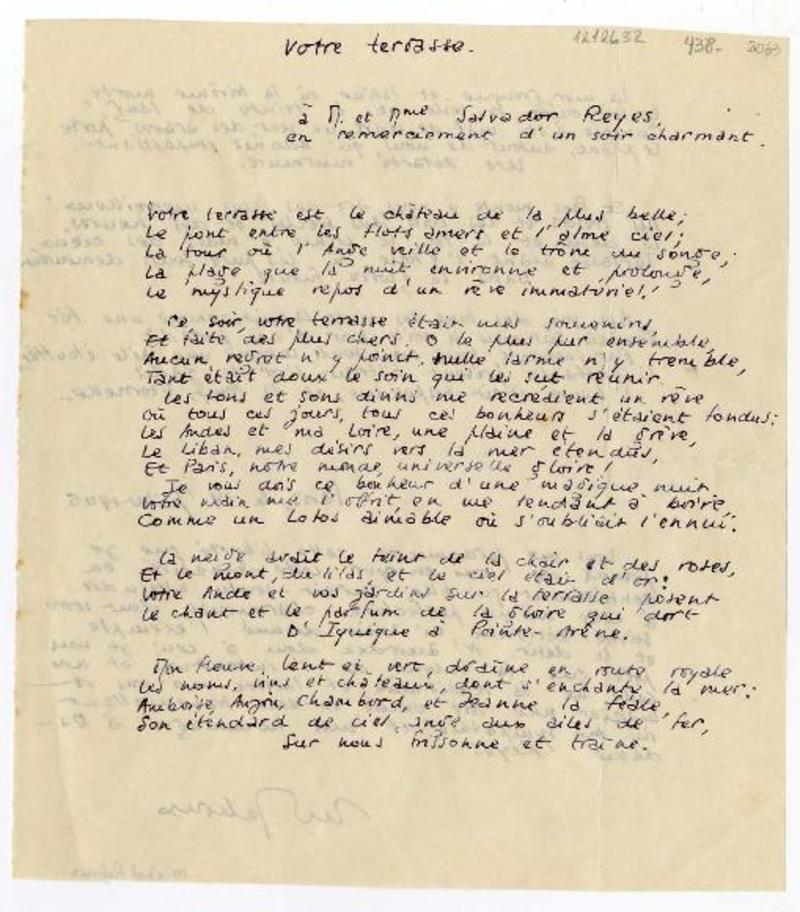 Votre terrasse.
1212632 438- 3063
à M. et Mme Salvador Reyes,
en remerciement d'un soir charmant.
Votre terrasse est le château de la plus belle;
Le pont entre les flots amers et l'alme ciel;
La tour où l'Ange veille et le trône du songe;
La plage que la nuit environne et prolonge,
Le mystique repos d'un rêve immatériel!
Ce soir, votre terrasse était mes souvenirs,
Et faite des plus chers. O le plus pur ensemble,
Aucun regret n'y point, nulle larme n'y tremble,
Tant était doux le soin qui les sut réunir.
Les tons et sons divins me recréaient un rêve
Où tous ces jours, tous ces bonheurs s'étaient fondus:
Les Andes et ma Loire, une plaine et la grève,
Le Liban, mes désirs vers la mer étendus,
Et Paris, notre monde, universelle gloire!
Je vous dois ce bonheur d'une magique nuit
Votre main me l'offrit en me tendant à boire,
Comme un Lotos aimable où s'oubliait l'ennui.
La neige avait le teint de la chair et des roses,
Et le mont, du lilas, et le ciel était d'or:
Votre Ande et vos jardins sur la terrasse posent
Le chant et le parfum de la gloire qui dort
D'Iquique à Pointe-Arène.
Mon fleuve, lent et vert, draîne en route royale
Les noms, vins et châteaux, dont s'enchante la mer:
Amboise, Anjou, Chambord, et Jeanne la féale,
Son étendard de ciel, ange aux ailes de fer,
Sur nous frissonne et traîne.